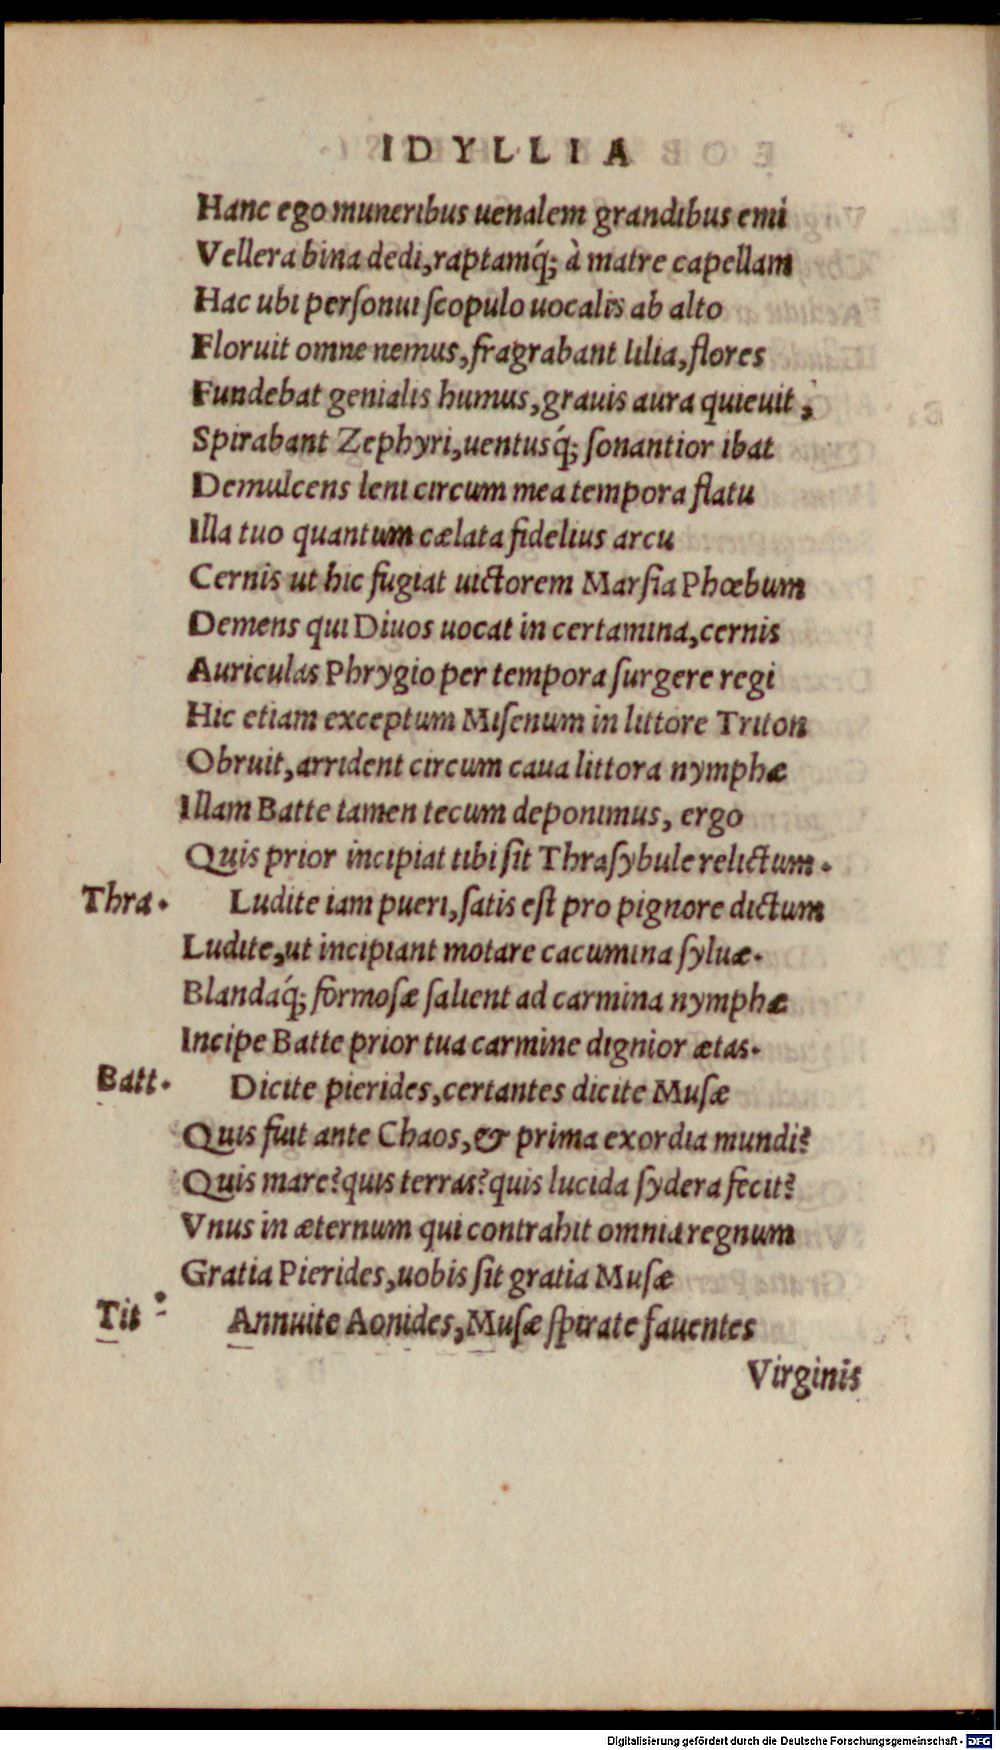 IDYLLIA
Hanc ego muneribus uenalem grandibus emi
Vellera bina dedi, raptamq́; à matre capellam
Hac ubi personui scopulo uocalis ab alto
Floruit omne nemus, fragrabant lilia, flores
Fundebat genialis humus, grauis aura quieuit,
Spirabant Zephyri, uentusq́; sonantior ibat
Demulcens leni circum mea tempora flatu
Illa tuo quantum cælata fidelius arcu
Cernis ut hic fugiat uictorem Marsia Phœbum
Demens qui Diuos uocat in certamina, cernis
Auriculas Phrygio per tempora surgere regi
Hic etiam exceptum Misenum in littore Triton
Obruit, arrident circum caua littora nymphæ
Illam Batte tamen tecum deponimus, ergo
Quis prior incipiat tibi sit Thrasybule relictum.
Thra. Ludite iam pueri, satis est pro pignore dictum
Ludite, ut incipiant motare cacumina syluæ.
Blandaq́; formosæ salient ad carmina nymphæ
Incipe Batte prior tua carmine dignior ætas.
Batt. Dicite pierides, certantes dicite Musæ
Quis fuit ante Chaos, & prima exordia mundi?
Quis mare? quis terras? quis lucida sydera fecit?
Vnus in æternum qui contrahit omnia regnum
Gratia Pierides, uobis sit gratia Musæ
Tit. Annuite Aonides, Musæ spirate fauentes
Virginis
Digitalisierung gefördert durch die Deutsche Forschungsgemeinschaft - DFG